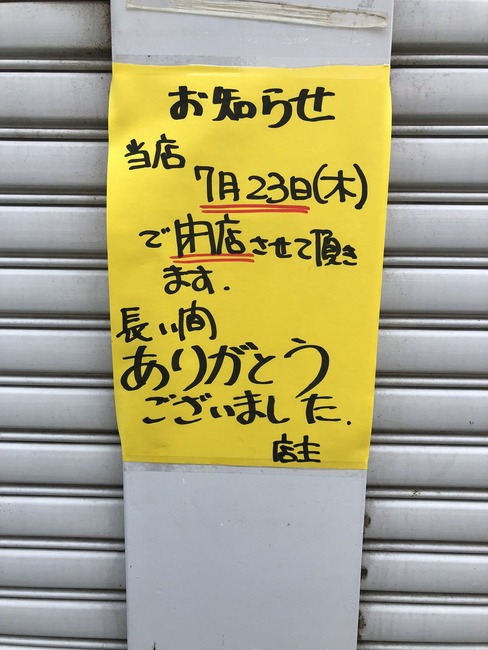 お知らせ
当店
7月23日(木)
で閉店させて頂き
ます.
長い間
ありがとう
ございました.
店主